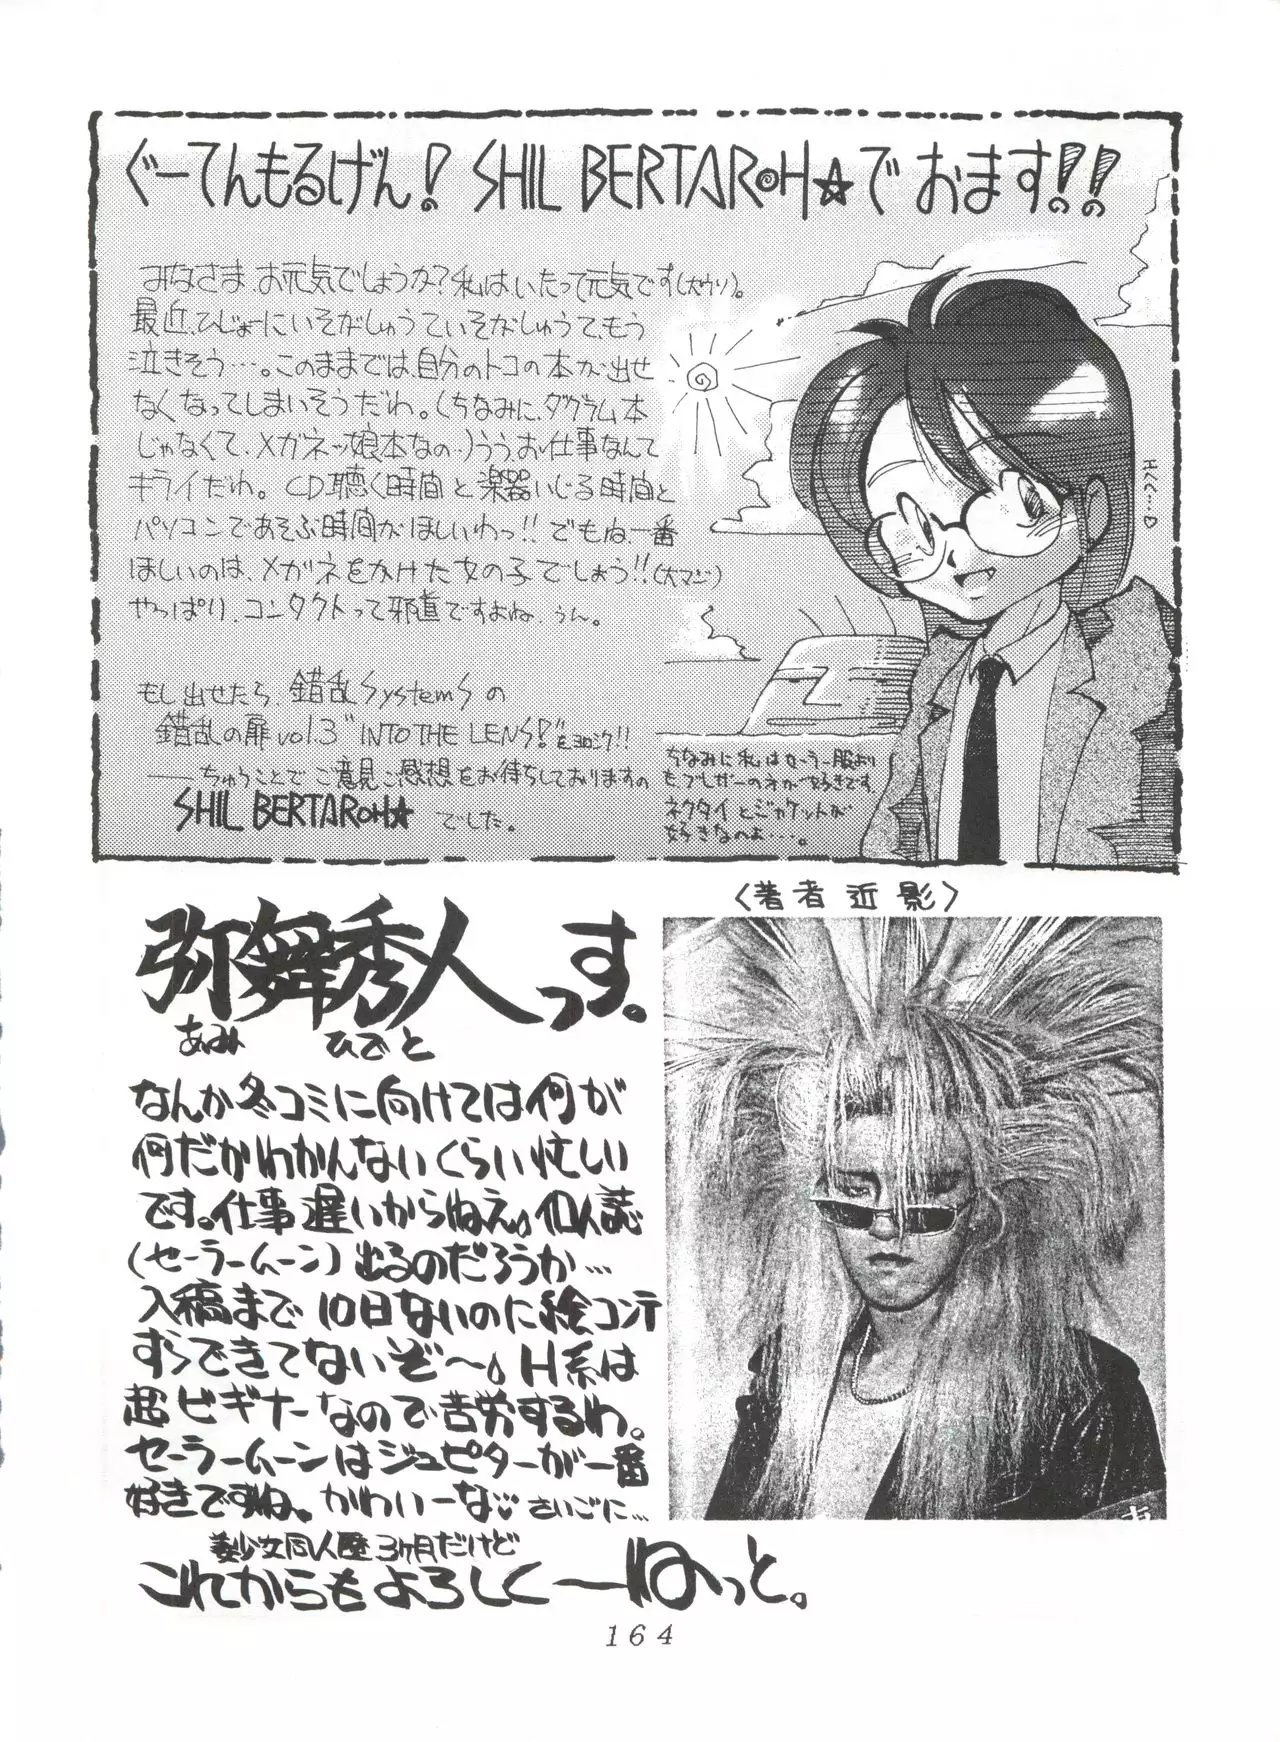 ぐーてんもるげん! SHIL BERTAROH☆でおます!!
みなさま、お元気でしょうか?私は、いたって元気です(大ウソ)。
最近、ひじょーにいそがしゅうていそがしゅうて、もう
泣きそう…。このままでは、自分のトコの本が、出せ
なくなってしまいそうだわ。(ちなみに、ダグラム本
じゃなくて、メガネッ娘本なの…)ううぅ、お仕事なんて
キライだわ。CD聴く時間と楽器いじる時間と
パソコンであそぶ時間がほしいわっ!!でもね、一番
ほしいのは、メガネをかけた女の子でしょう!!(大マジ)
やっぱり、コンタクトって邪道ですよね、うん。
もし出せたら、錯乱SystemSの
錯乱の扉vol.3"INTO THE LENS!"をヨロシク!!
——ちゅうことでご意見ご感想をお待ちしておりますの
SHIL BERTAROH☆でした。
ちなみに私はセーラー服より
も、ブレザーの方が好きです。
ネクタイとジャケットが
好きなのよ…。
〈著者近影〉
弥舞秀人っす。
あみ ひでと
なんか冬コミに向けては何が
何だかわかんないくらい忙しい
です。仕事遅いからねえ。個人誌
(セーラームーン)出るのだろうか…
入稿まで10日ないのに絵コンテ
すらできてないぞ〜。H系は
超ビギナーなので苦労するわ。
セーラームーンはジュピターが一番
好きですね。かわいーな♡さいごに…
美少女同人歴3ヶ月だけど
これからもよろしく〜ねっと。
164